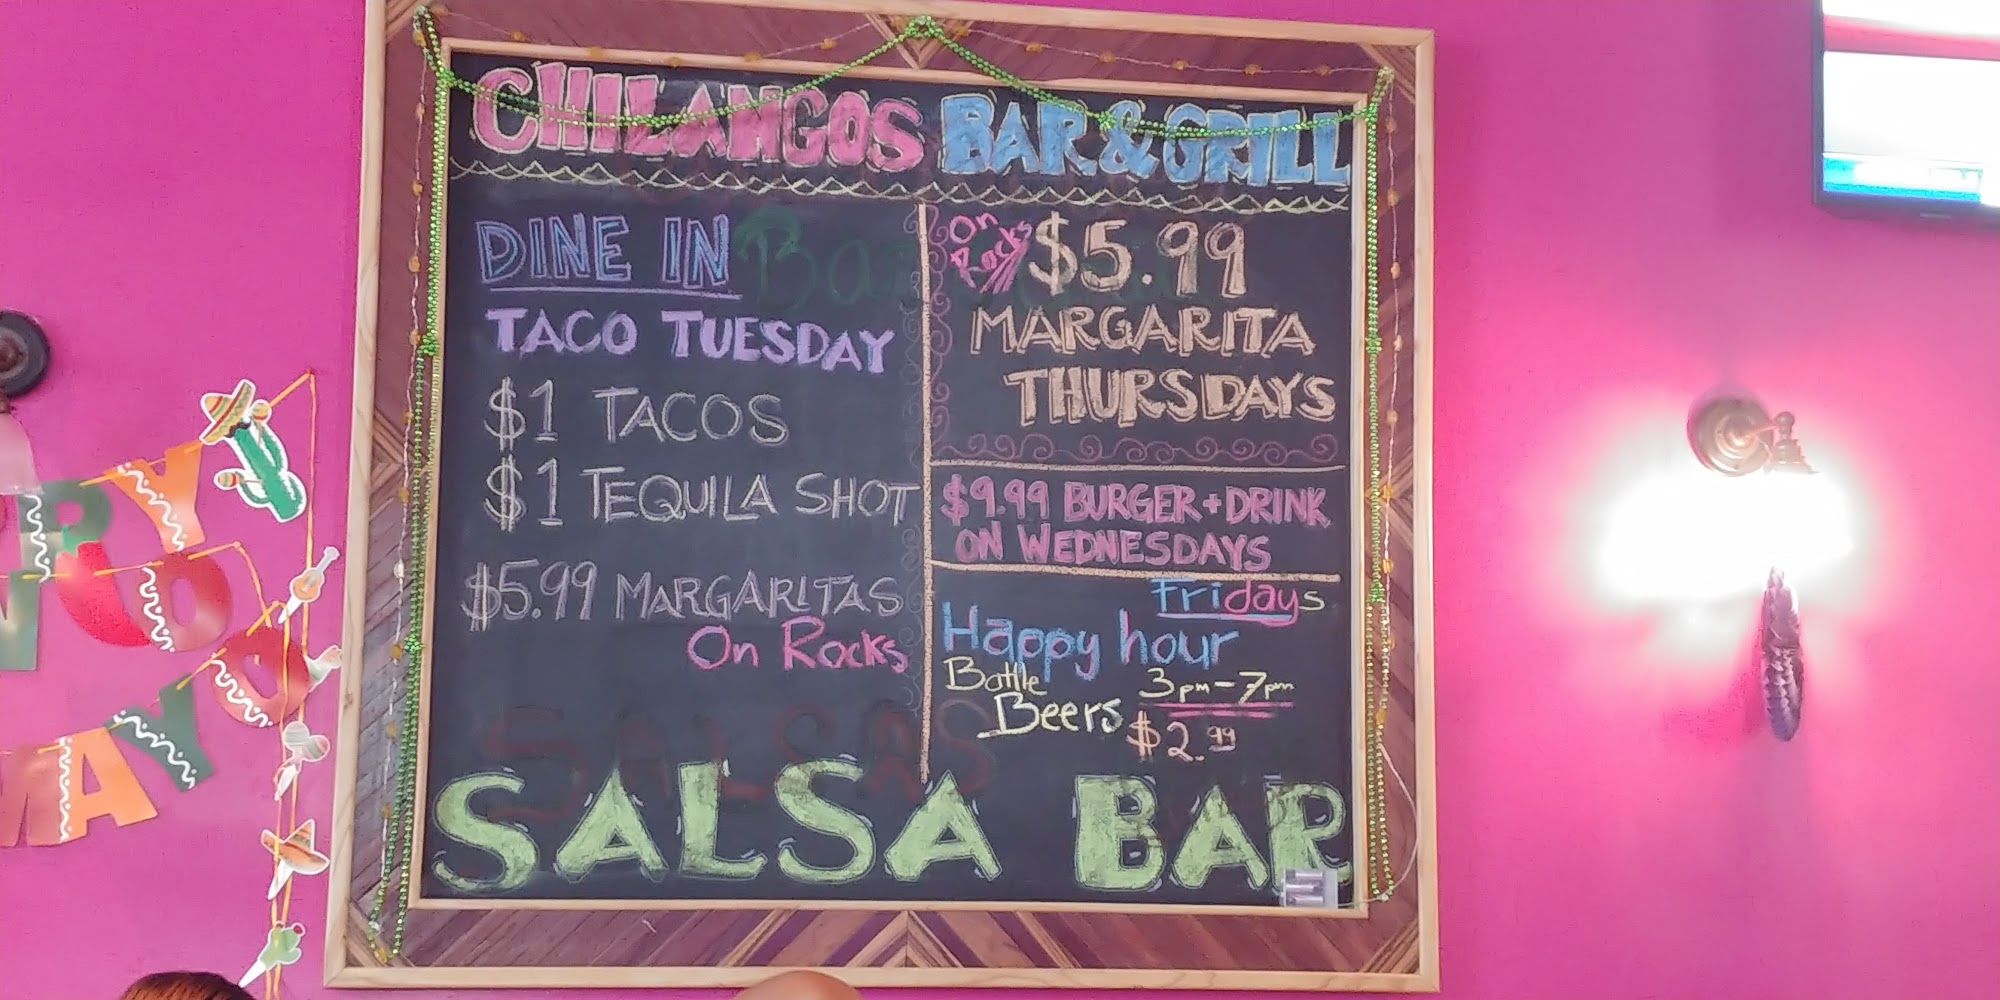 CHILANGOS BAR & GRILL
DINE IN
TACO TUESDAY
$1 TACOS
$1 TEQUILA SHOT
$5.99 MARGARITAS
On Rocks
On Rocks $5.99
MARGARITA
THURSDAYS
$9.99 BURGER + DRINK
ON WEDNESDAYS
Fridays
Happy hour
Bottle
Beers
3pm - 7pm
$2.99
SALSAS
SALSA BAR
MAYO